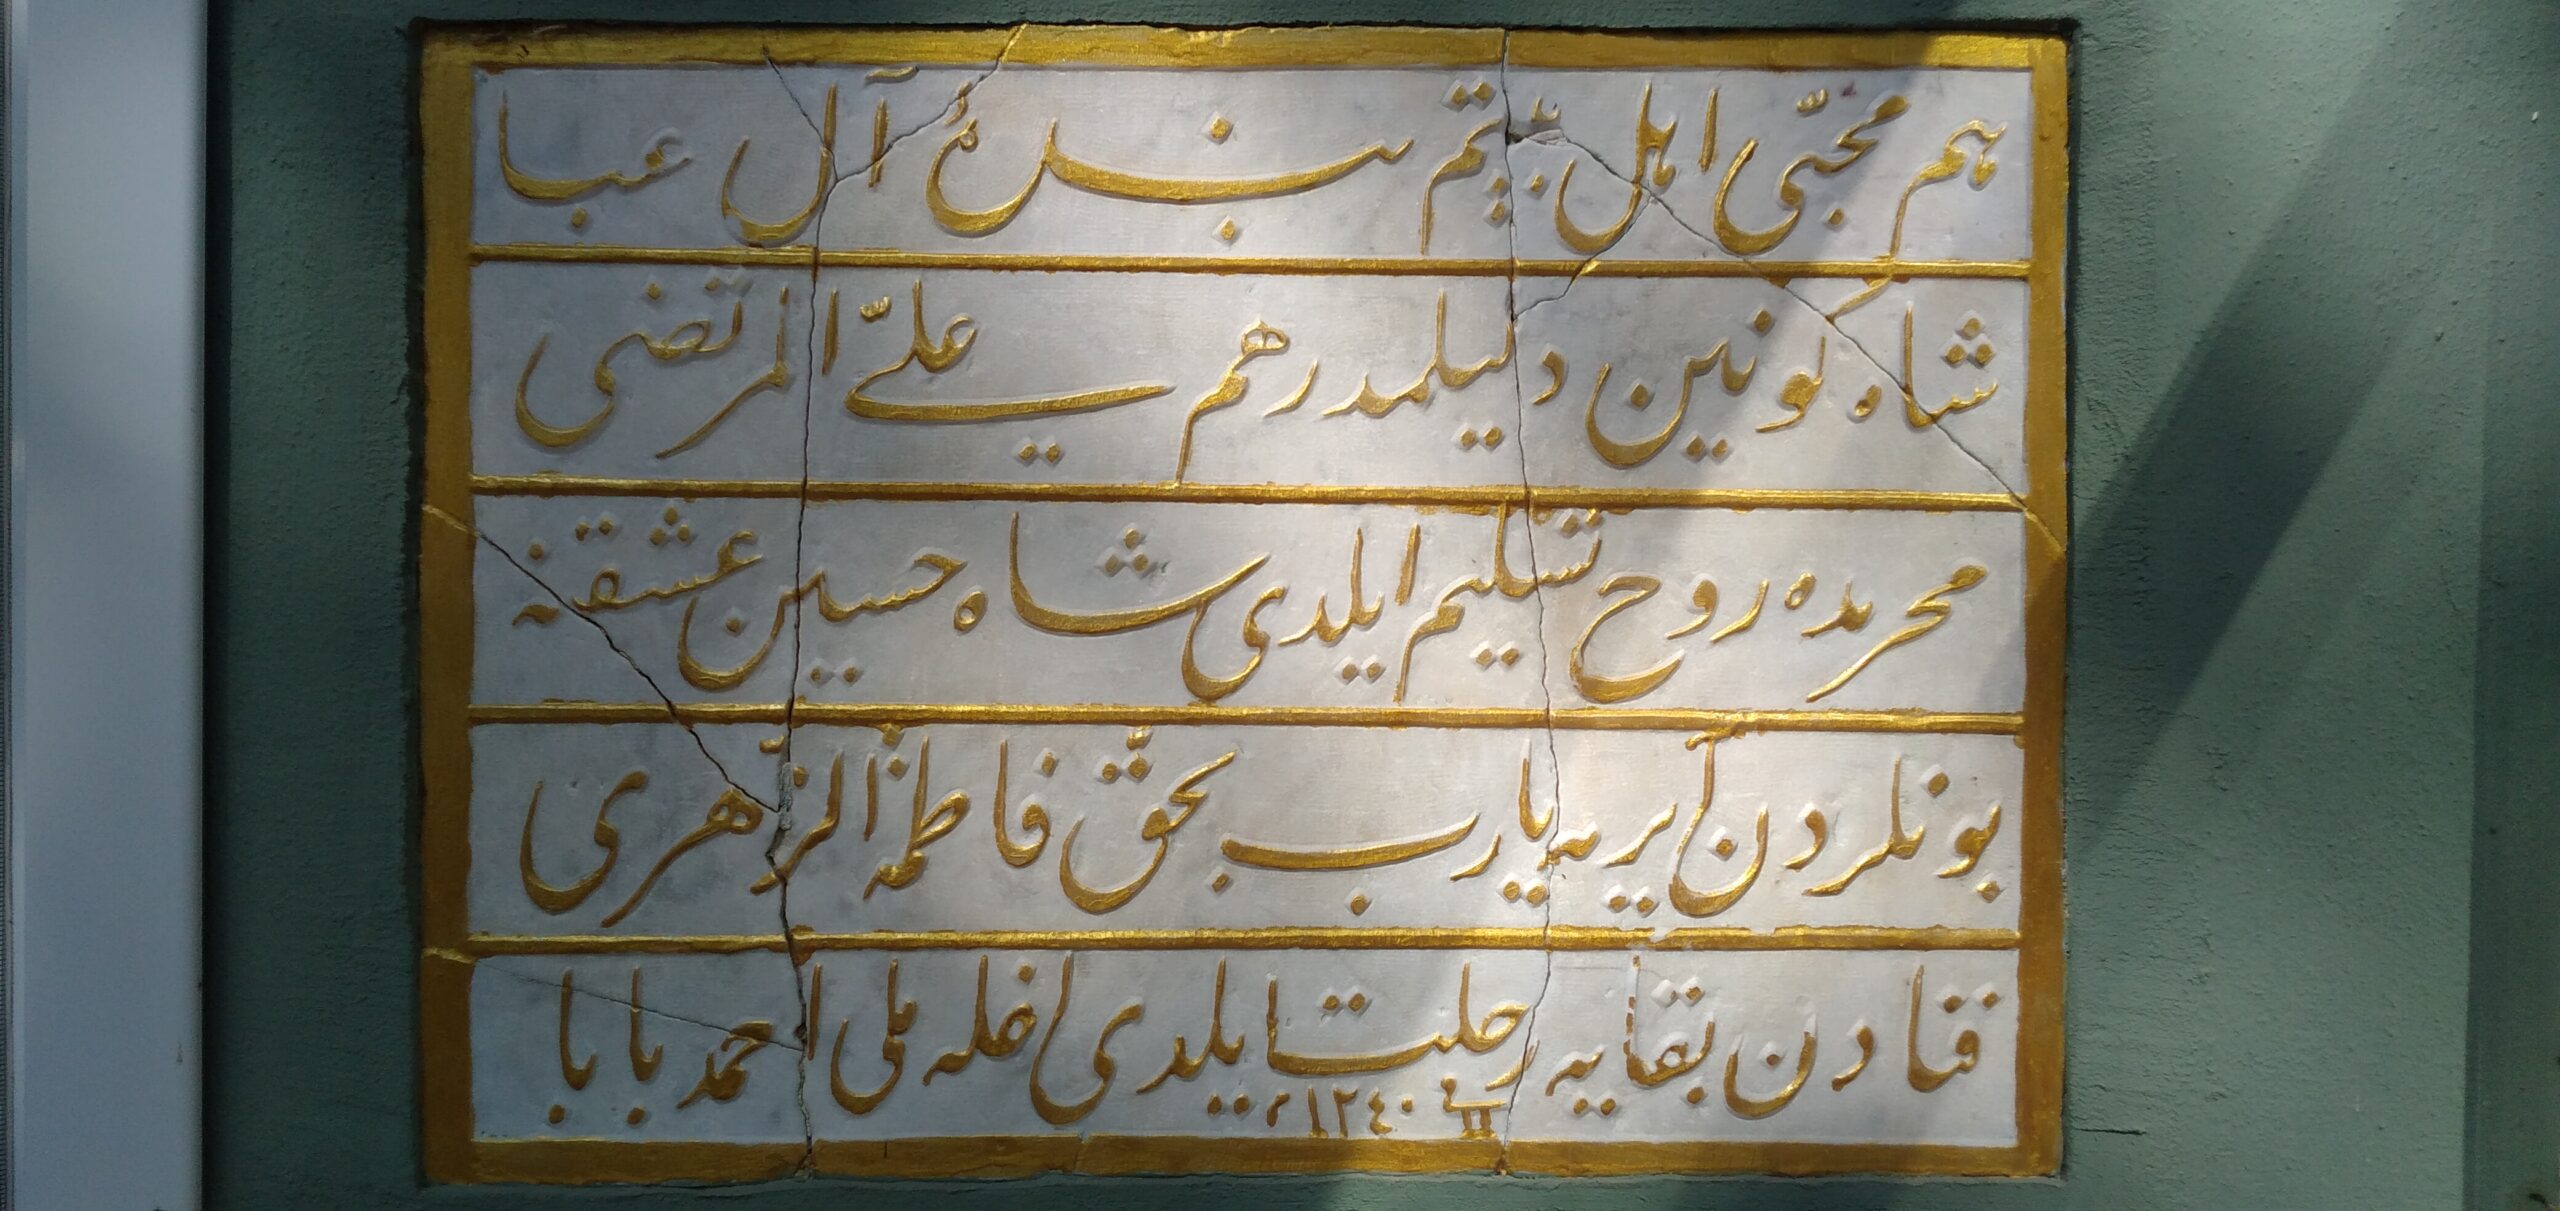 هم محبّی اهل بیتم بندهٔ آل عبا
شاه کونین دلیلمدر هم علیّ المرتضی
محرمده روح تسلیم ایلدی شاه حسین عشقنه
بونلردن آیریه یارب بحقّ فاطمة الزّهری
فنادن بقایه رحلت ایلدی اخله ملی احمد بابا
فی ١١ م ١٢٤٠